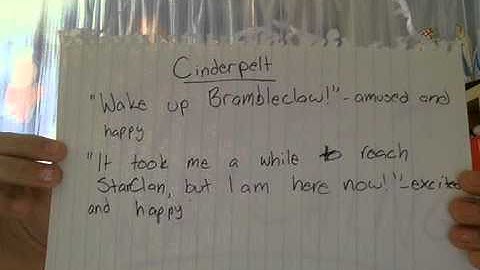 Cinderpelt
"Wake up Brambleclaw!" - amused and
happy
"It took me a while to reach
StarClan, but I am here now!" - excited
and happy